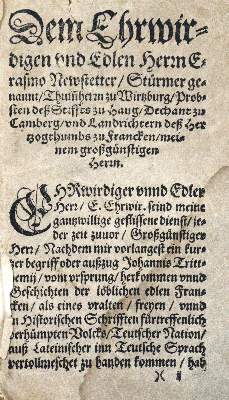 Dem Ehrwir-
digen vnd Edlen Herrn E-
rasmo Newstetter / Stürmer ge-
nannt / Thuñherrn zu Wirtzburg / Prob-
sten deß Stiffts zu Haug / Dechant zu
Camberg / vnd Landrichtern deß Her-
tzogthumbs zu Francken / mei-
nem großgünstigen
Herrn.
EHRwirdiger vnnd Edler
Herr / E. Ehrwir. seind meine
gantzwillige geflissene dienst / je-
der zeit zuuor / Großgünstiger
Herr / Nachdem mir vorlangest ein kur-
tzer begriff oder außzug Johannis Tritt-
temij / vom vrsprung / herkommen vnnd
Geschichten der löblichen edlen Fran-
cken / als eines vralten / freyen / vnnd
in Historischen Schrifften fürtrefflich
verhümpten Volcks / Teutscher Nation /
auß Lateinischer inn Teutsche Sprach
vertollmetschet zu handen kommen / hab